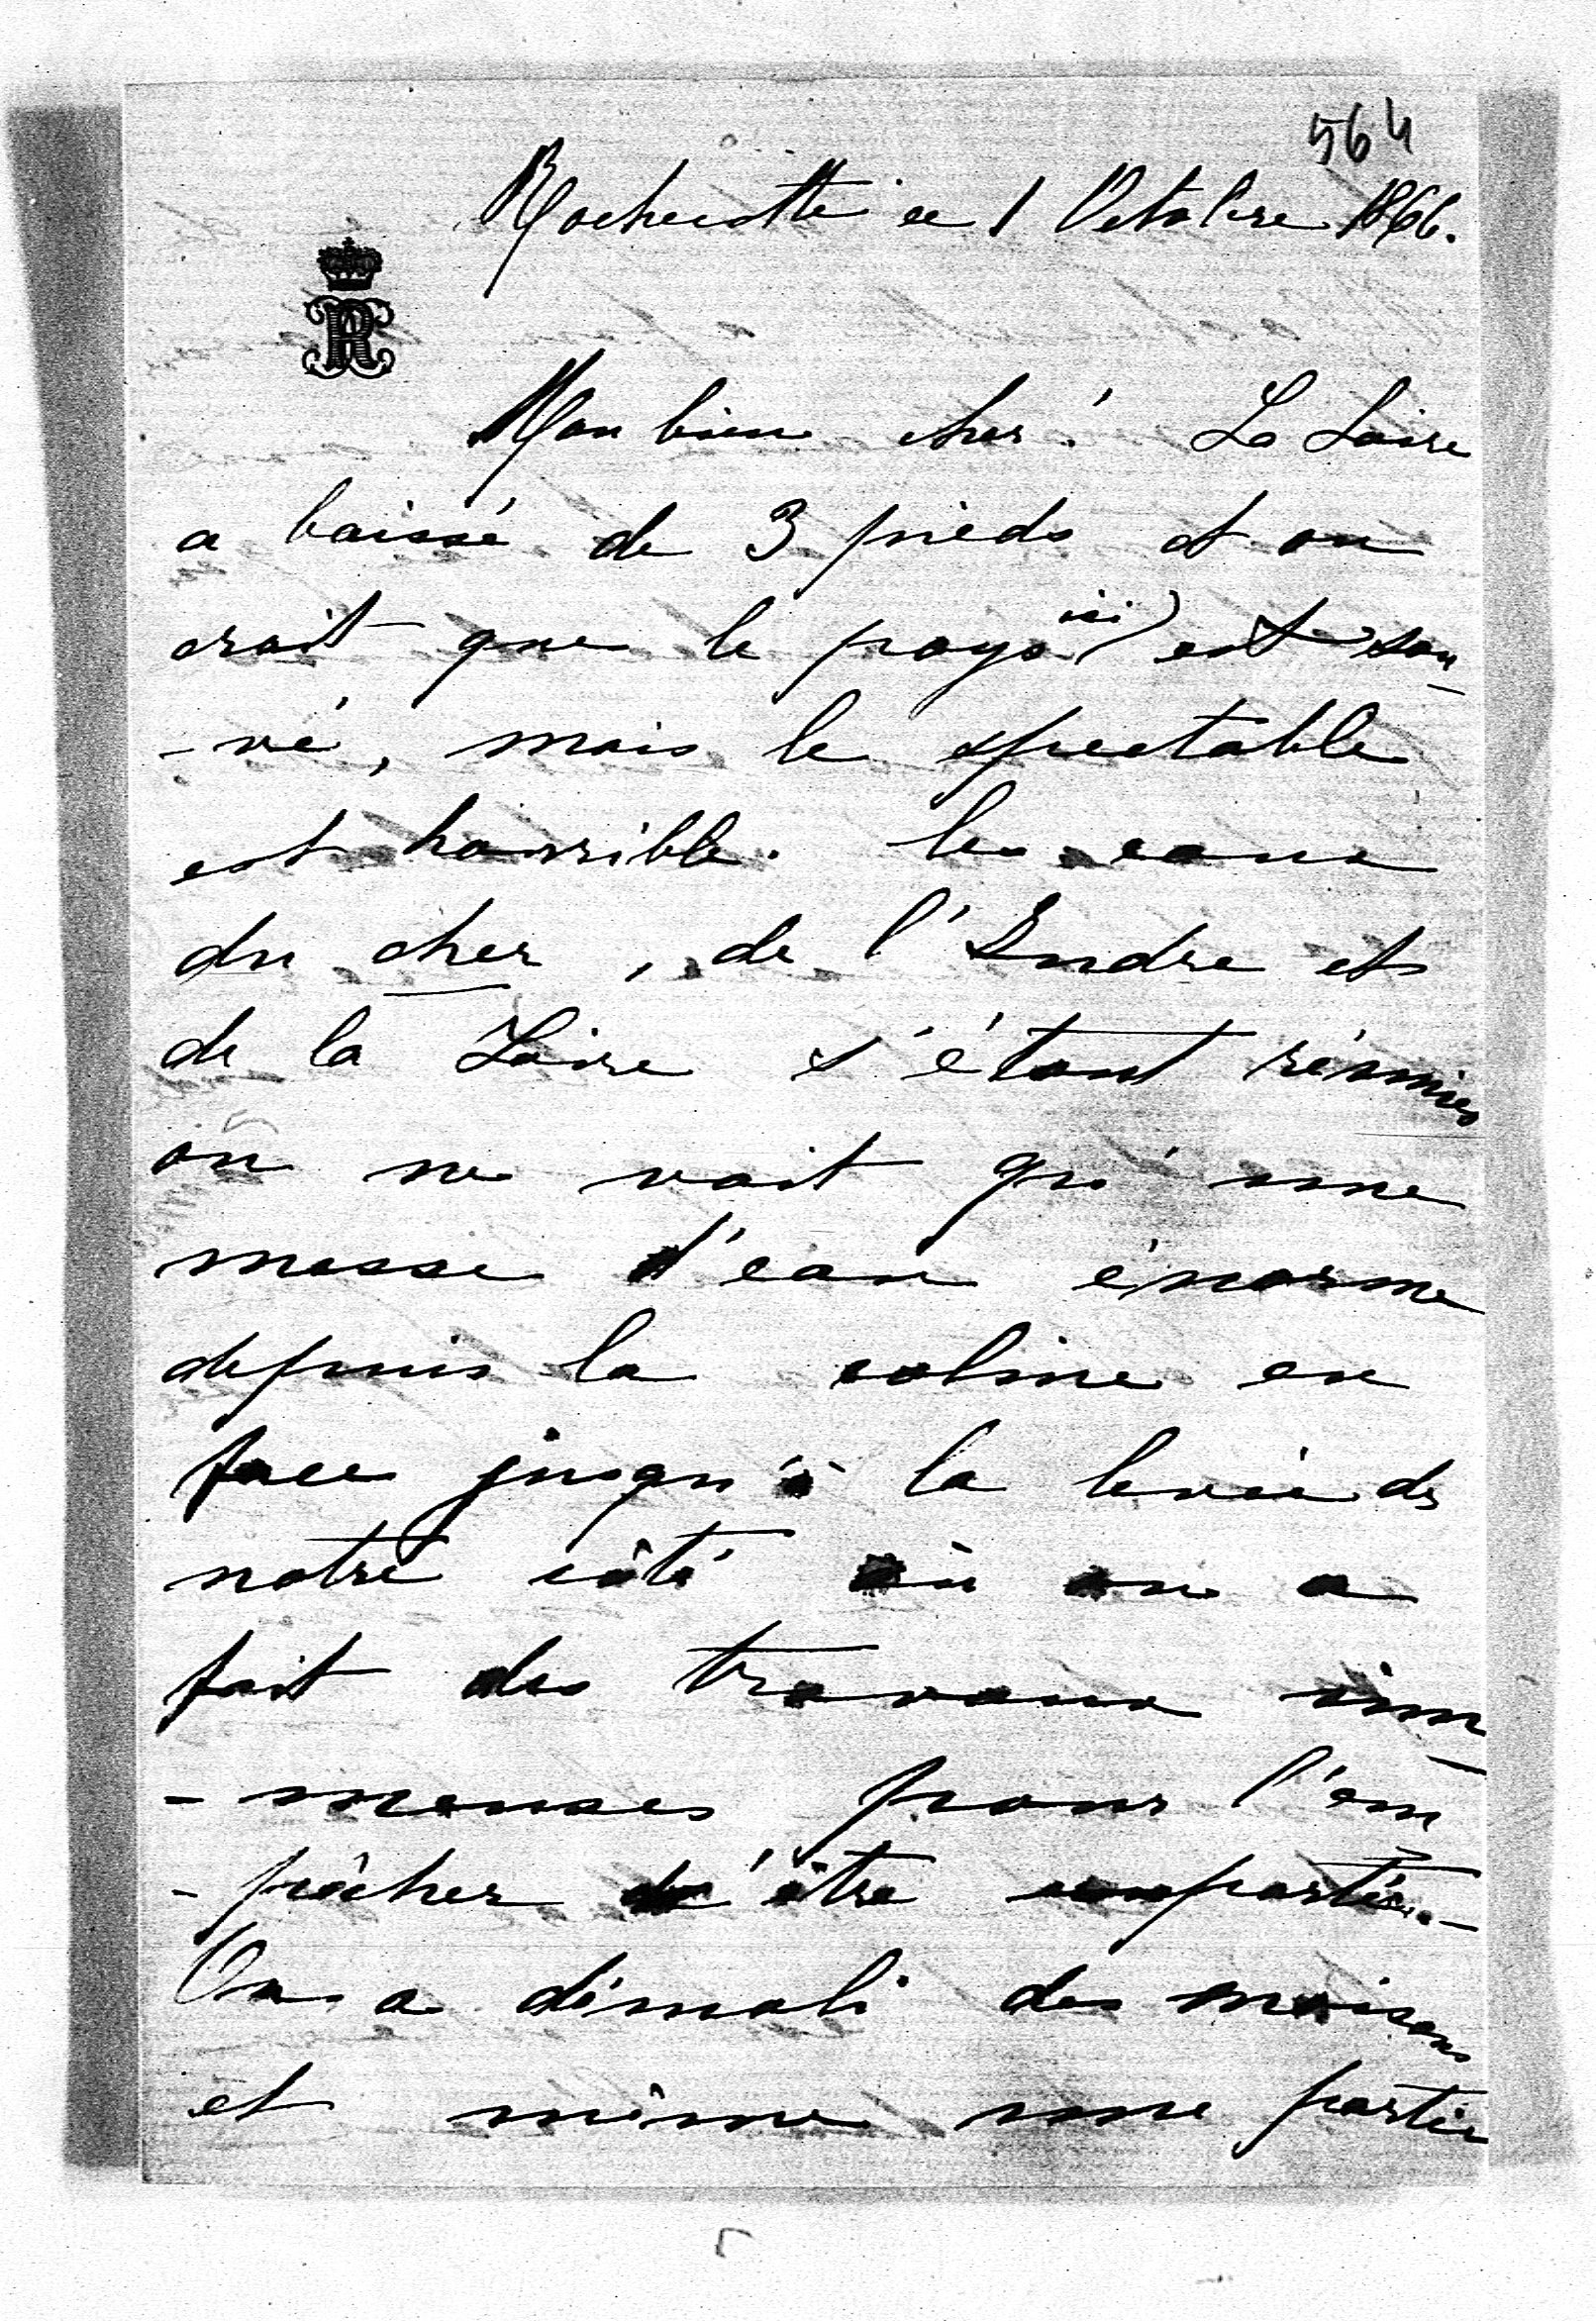 564
Rochecotte ce 1 Octobre 1866.
R
Mon bien cher! La Loire
a baissé de 3 pieds et on
croit que le pays ici est sau-
-vé, mais le spectable
est horrible. les eaux
du cher, de l'Indre et
de la Loire s'étant réunies
on ne voit qu'une
masse d'eau énorme
depuis la coline en
face jusqu'à la levée de
notre côté où on a
fait des travaux im-
-menses pour l'em
-pêcher d'être emportée.-
On a démoli des maisons
et même une partie